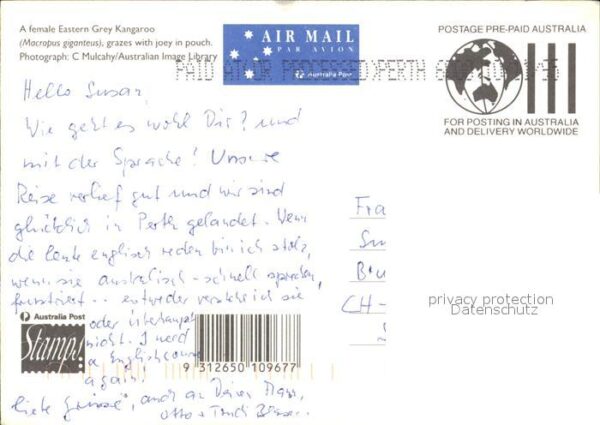 A female Eastern Grey Kangaroo
(Macropus giganteus), grazes with joey in pouch.
Photograph: C Mulcahy/Australian Image Library
AIR MAIL
PAR AVION
Australia Post
POSTAGE PRE-PAID AUSTRALIA
PAID AT OR PROCESSED PERTH
FOR POSTING IN AUSTRALIA
AND DELIVERY WORLDWIDE
Hello Susan,
Wie geht es wohl Dir? und
mit der Sprache! Unsere
Reise verlief gut und wir sind
glücklich in Perth gelandet. Wenn
die Leute englisch reden bin ich stolz,
wenn sie australisch - schnell sprechen,
frustriert .. entweder verstehe ich sie
oder überhaupt
nicht. I need
a Englishcourse
again.
liebe Grüsse, auch an Deinen Mann,
Otto + Trudi
Fra
CH-
privacy protection
Datenschutz
Australia Post
Stamps
9 312650 109677